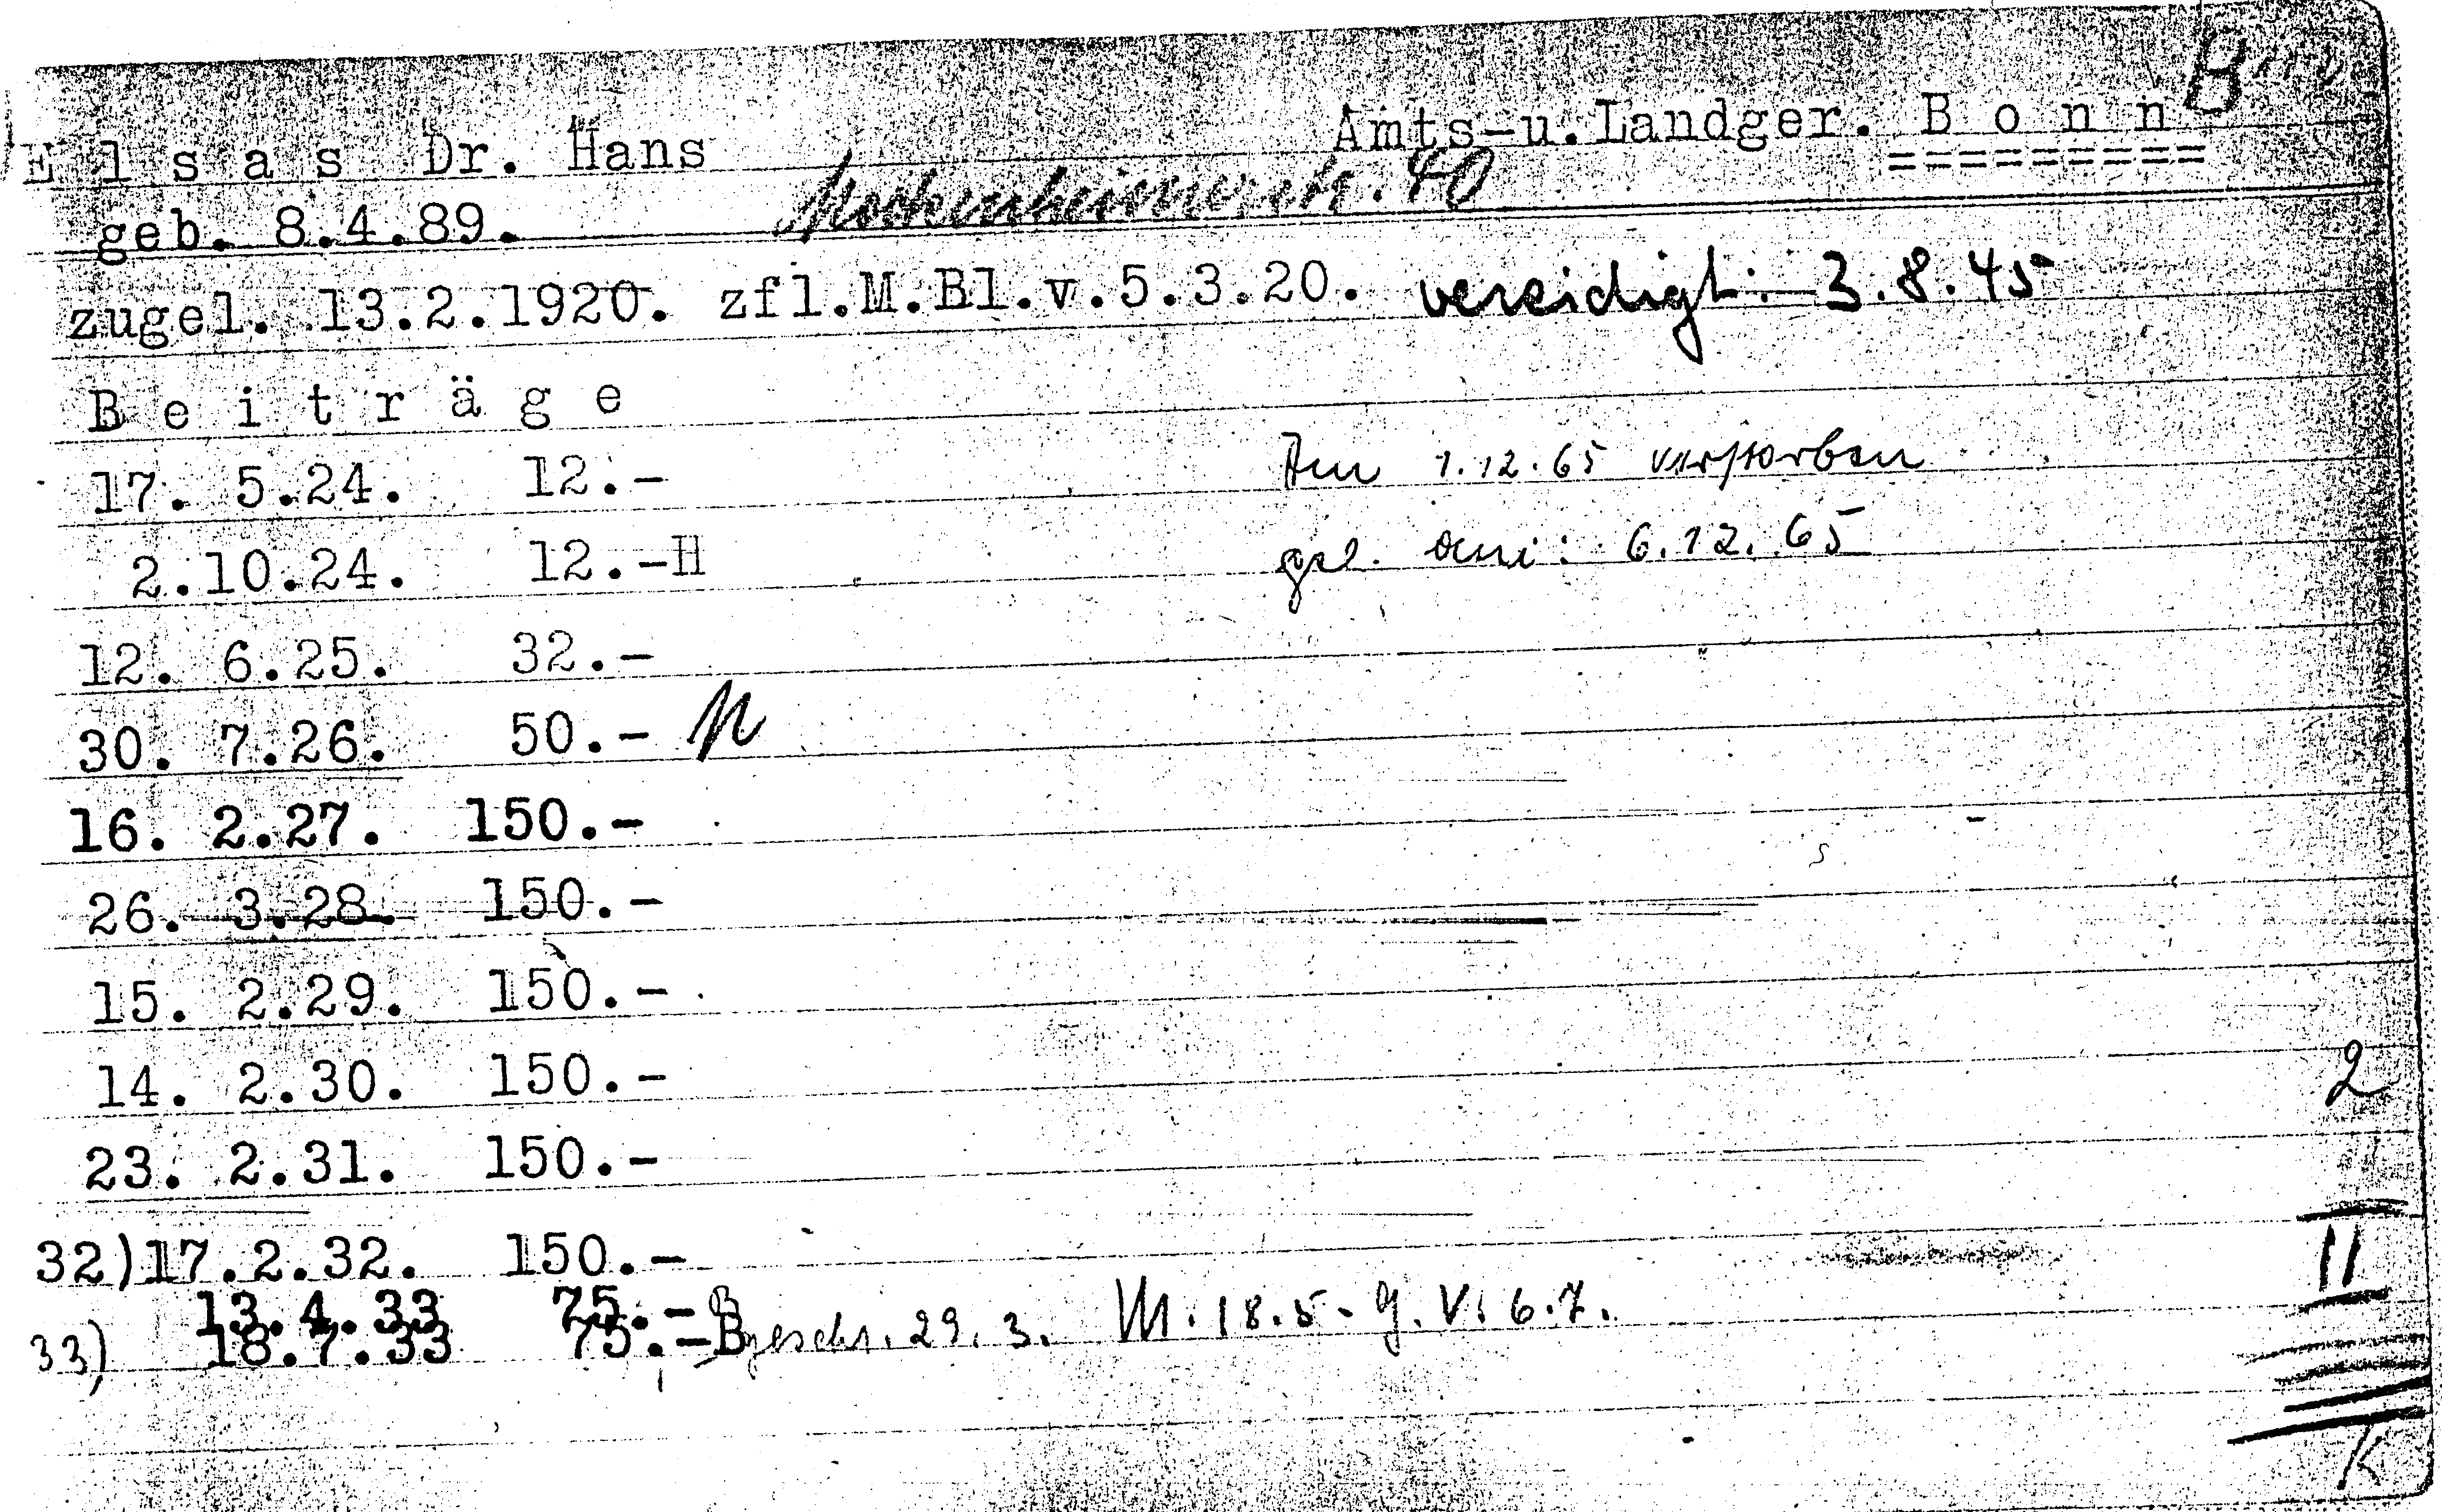 E l s a s Dr. Hans Amts-u.Landger. B o n n B
=========
geb. 8.4.89. 40
zugel. 13.2.1920. zfl.M.Bl.v.5.3.20. vereidigt: 3.8.45
B e i t r ä g e
17. 5.24. 12.- Am 1.12.65 verstorben
2.10.24. 12.-H gel. am: 6.12.65
12. 6.25. 32.-
30. 7.26. 50.-
16. 2.27. 150.-
26. 3.28. 150.-
15. 2.29. 150.-
14. 2.30. 150.- 2
23. 2.31. 150.-
32)17.2.32. 150.- II
13.4.33 75.-B
33) 18.7.33 75.-B gesch. 29.3. M. 18.5- G.V. 6.7.
K